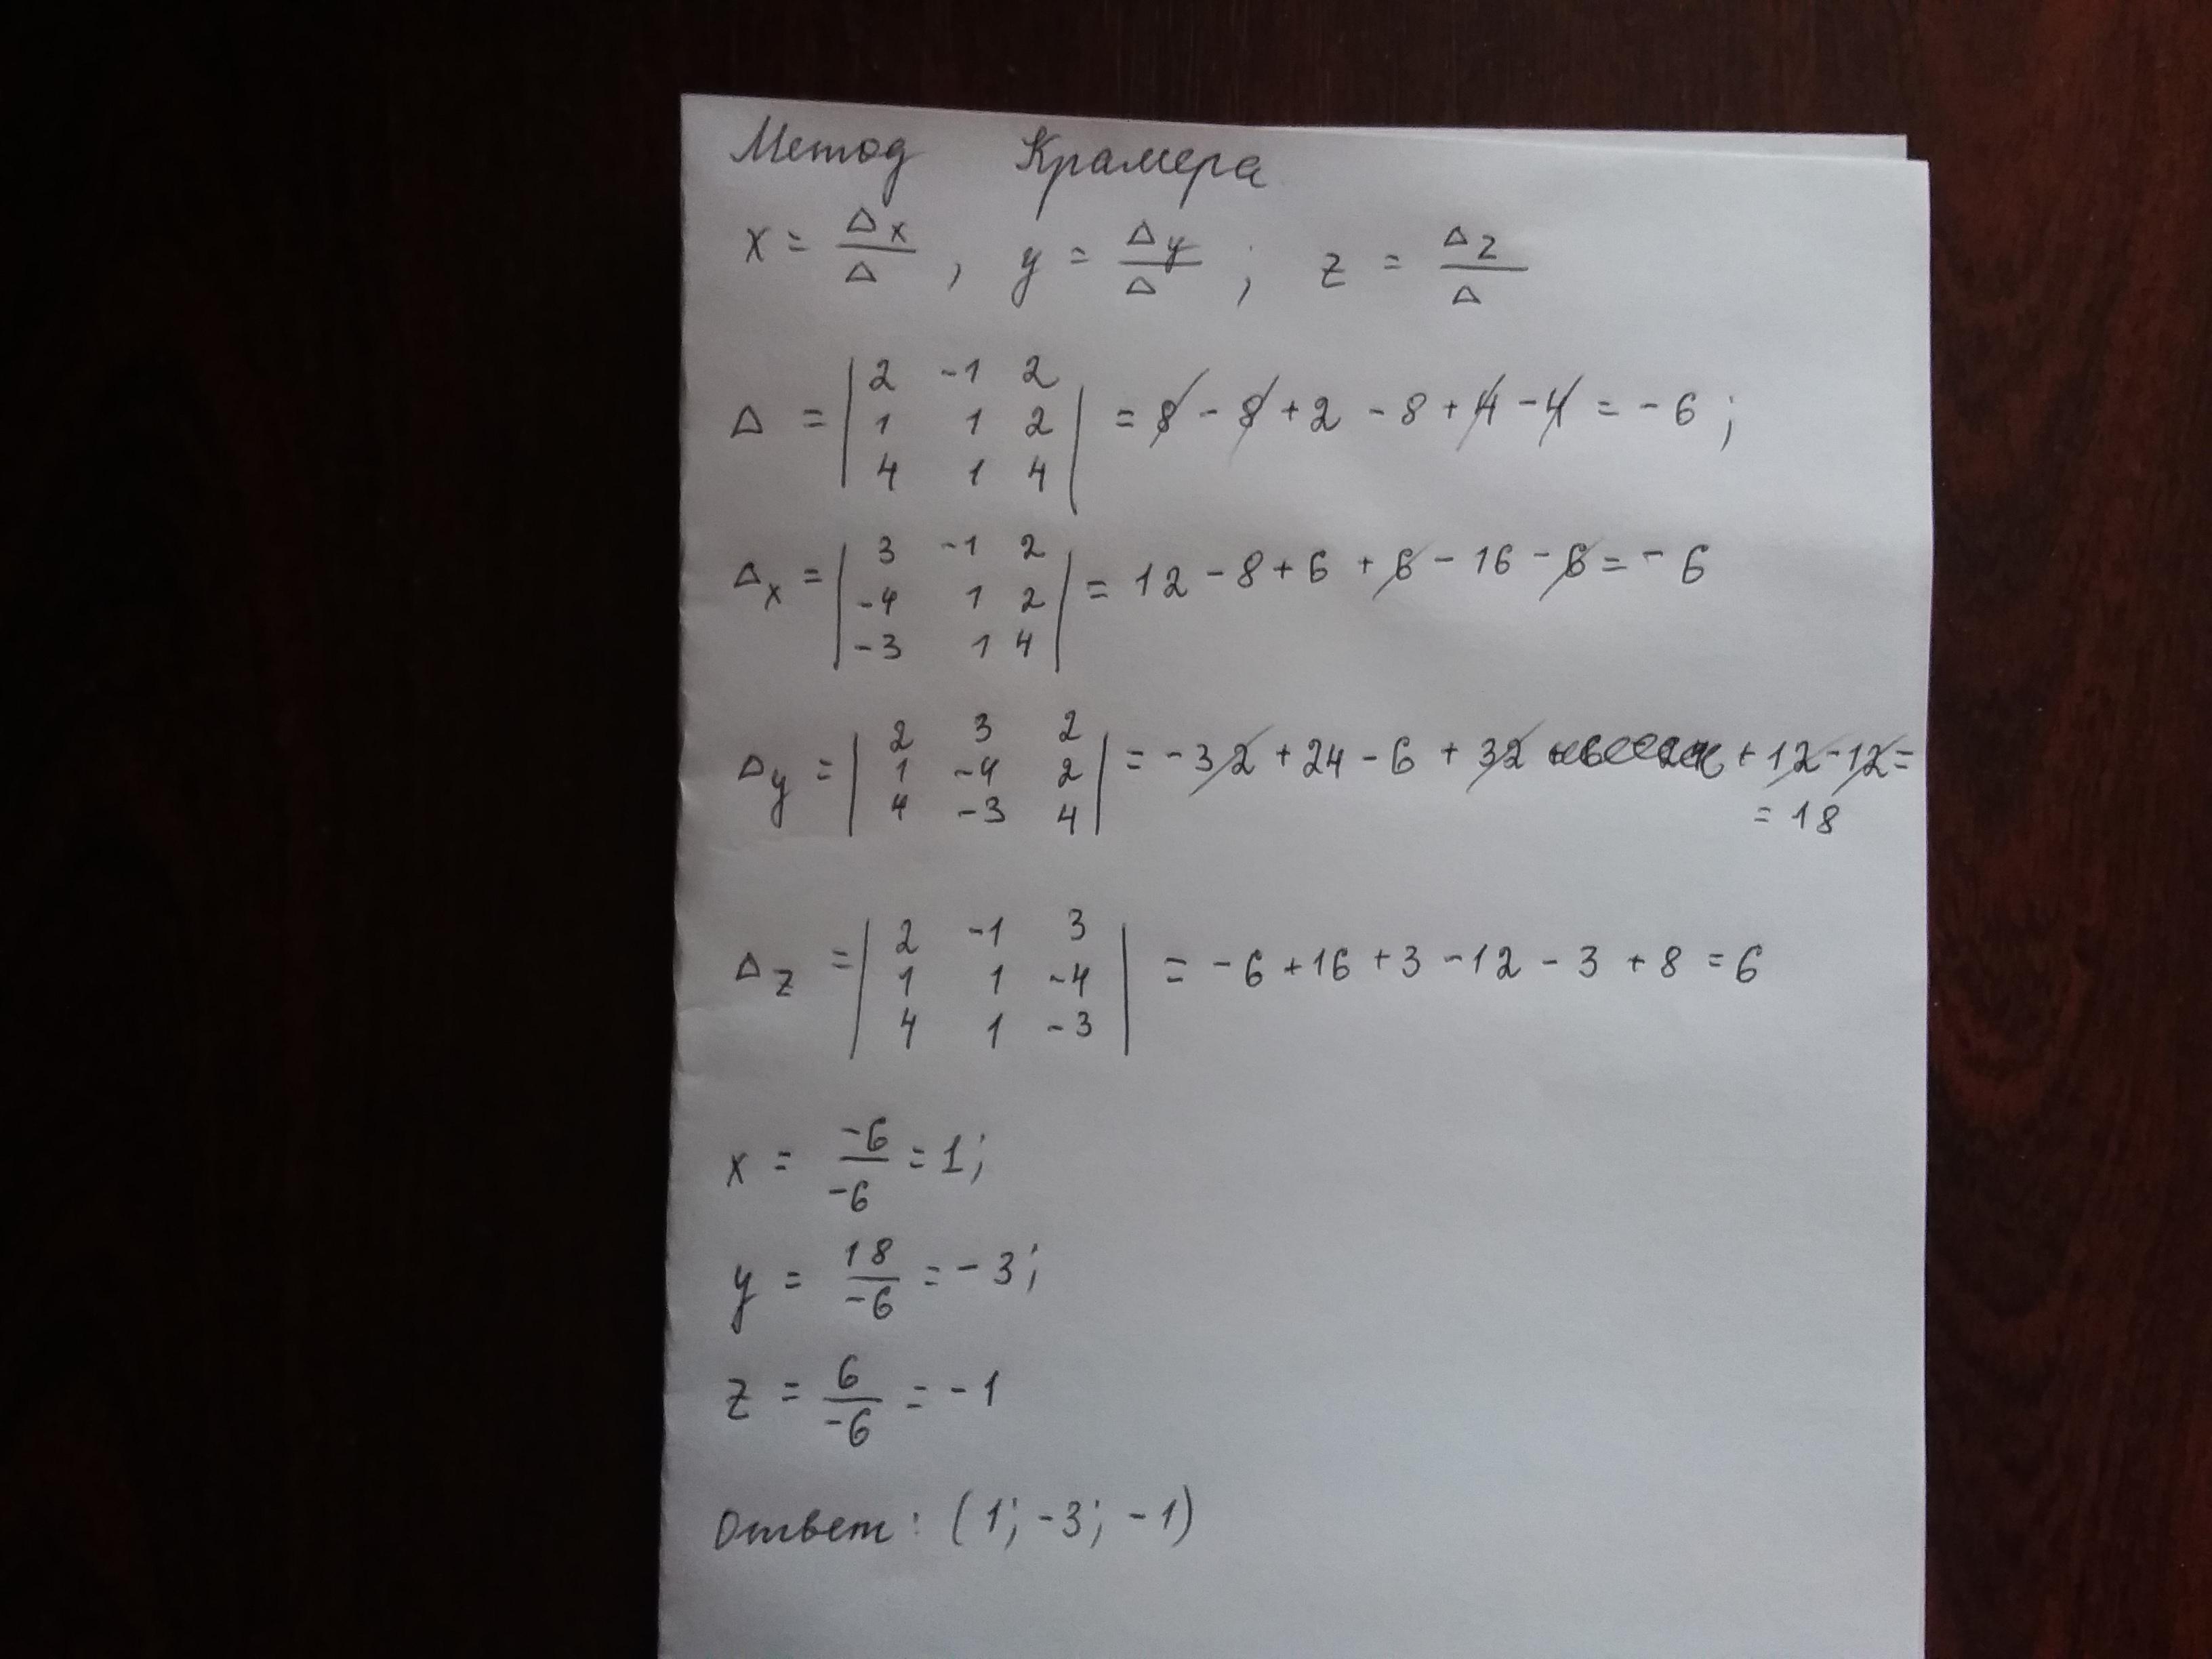 Метод Крамера
x = Δx/Δ, y = Δy/Δ; z = Δz/Δ
Δ = |2 -1 2
1 1 2
4 1 4| = 8 - 8 + 2 - 8 + 4 - 4 = -6;
Δx = |3 -1 2
-4 1 2
-3 1 4| = 12 - 8 + 6 + 6 - 16 - 6 = - 6
Δy = |2 3 2
1 -4 2
4 -3 4| = -32 + 24 - 6 + 32 + 12 - 12 =
= 18
Δz = |2 -1 3
1 1 -4
4 1 -3| = -6 + 16 + 3 - 12 - 3 + 8 = 6
x = -6/-6 = 1;
y = 18/-6 = -3;
z = 6/-6 = -1
Ответ: (1; -3; -1)